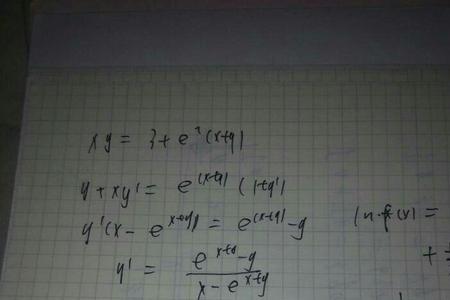 xy = 3 + e^(x+y)
y + xy' = e^(x+y) (1+y')
y'(x - e^(x+y)) = e^(x+y) - y
y' = (e^(x+y) - y) / (x - e^(x+y))
ln f(x) =
+